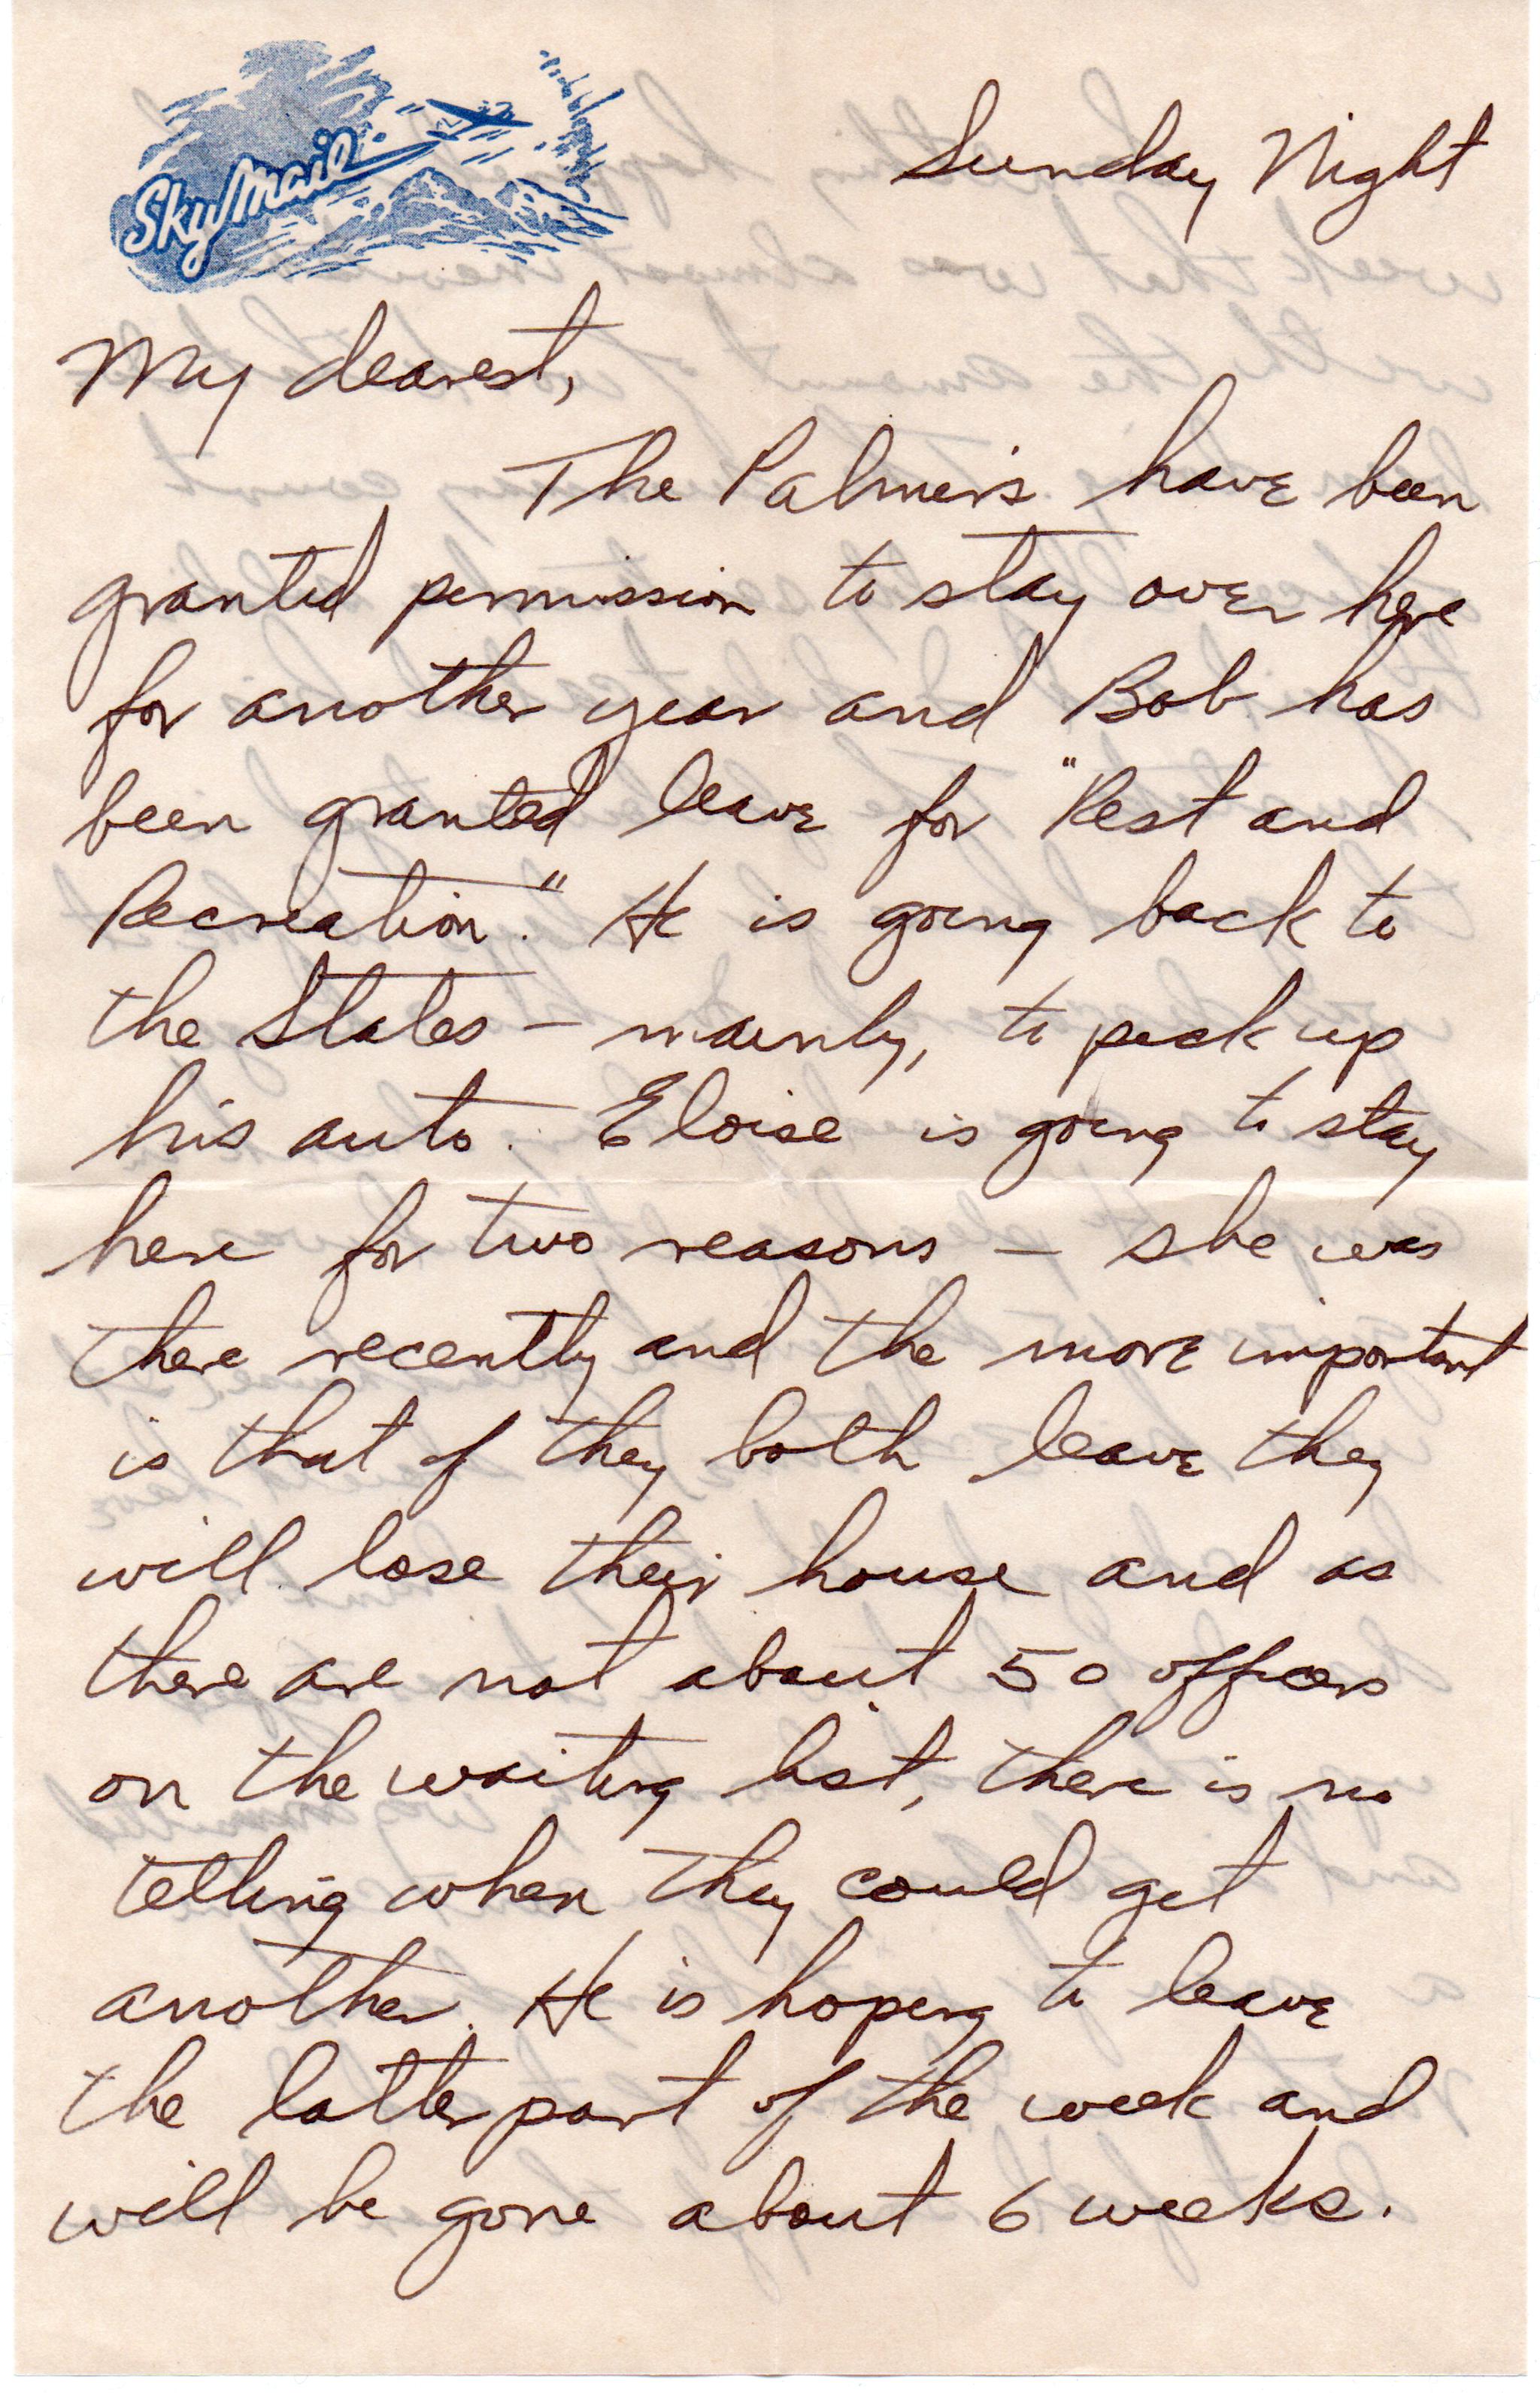 SkyMail
Sunday Night
My dearest,
The Palmers have been
granted permission to stay over here
for another year and Bob has
been granted leave for "Rest and
Recreation." He is going back to
the States - mainly, to pick up
his auto. Eloise is going to stay
here for two reasons - she was
there recently and the more important
is that if they both leave they
will lose their house and as
there are not about 50 officers
on the waiting list, there is no
telling when they could get
another. He is hoping to leave
the latter part of the week and
will be gone about 6 weeks.